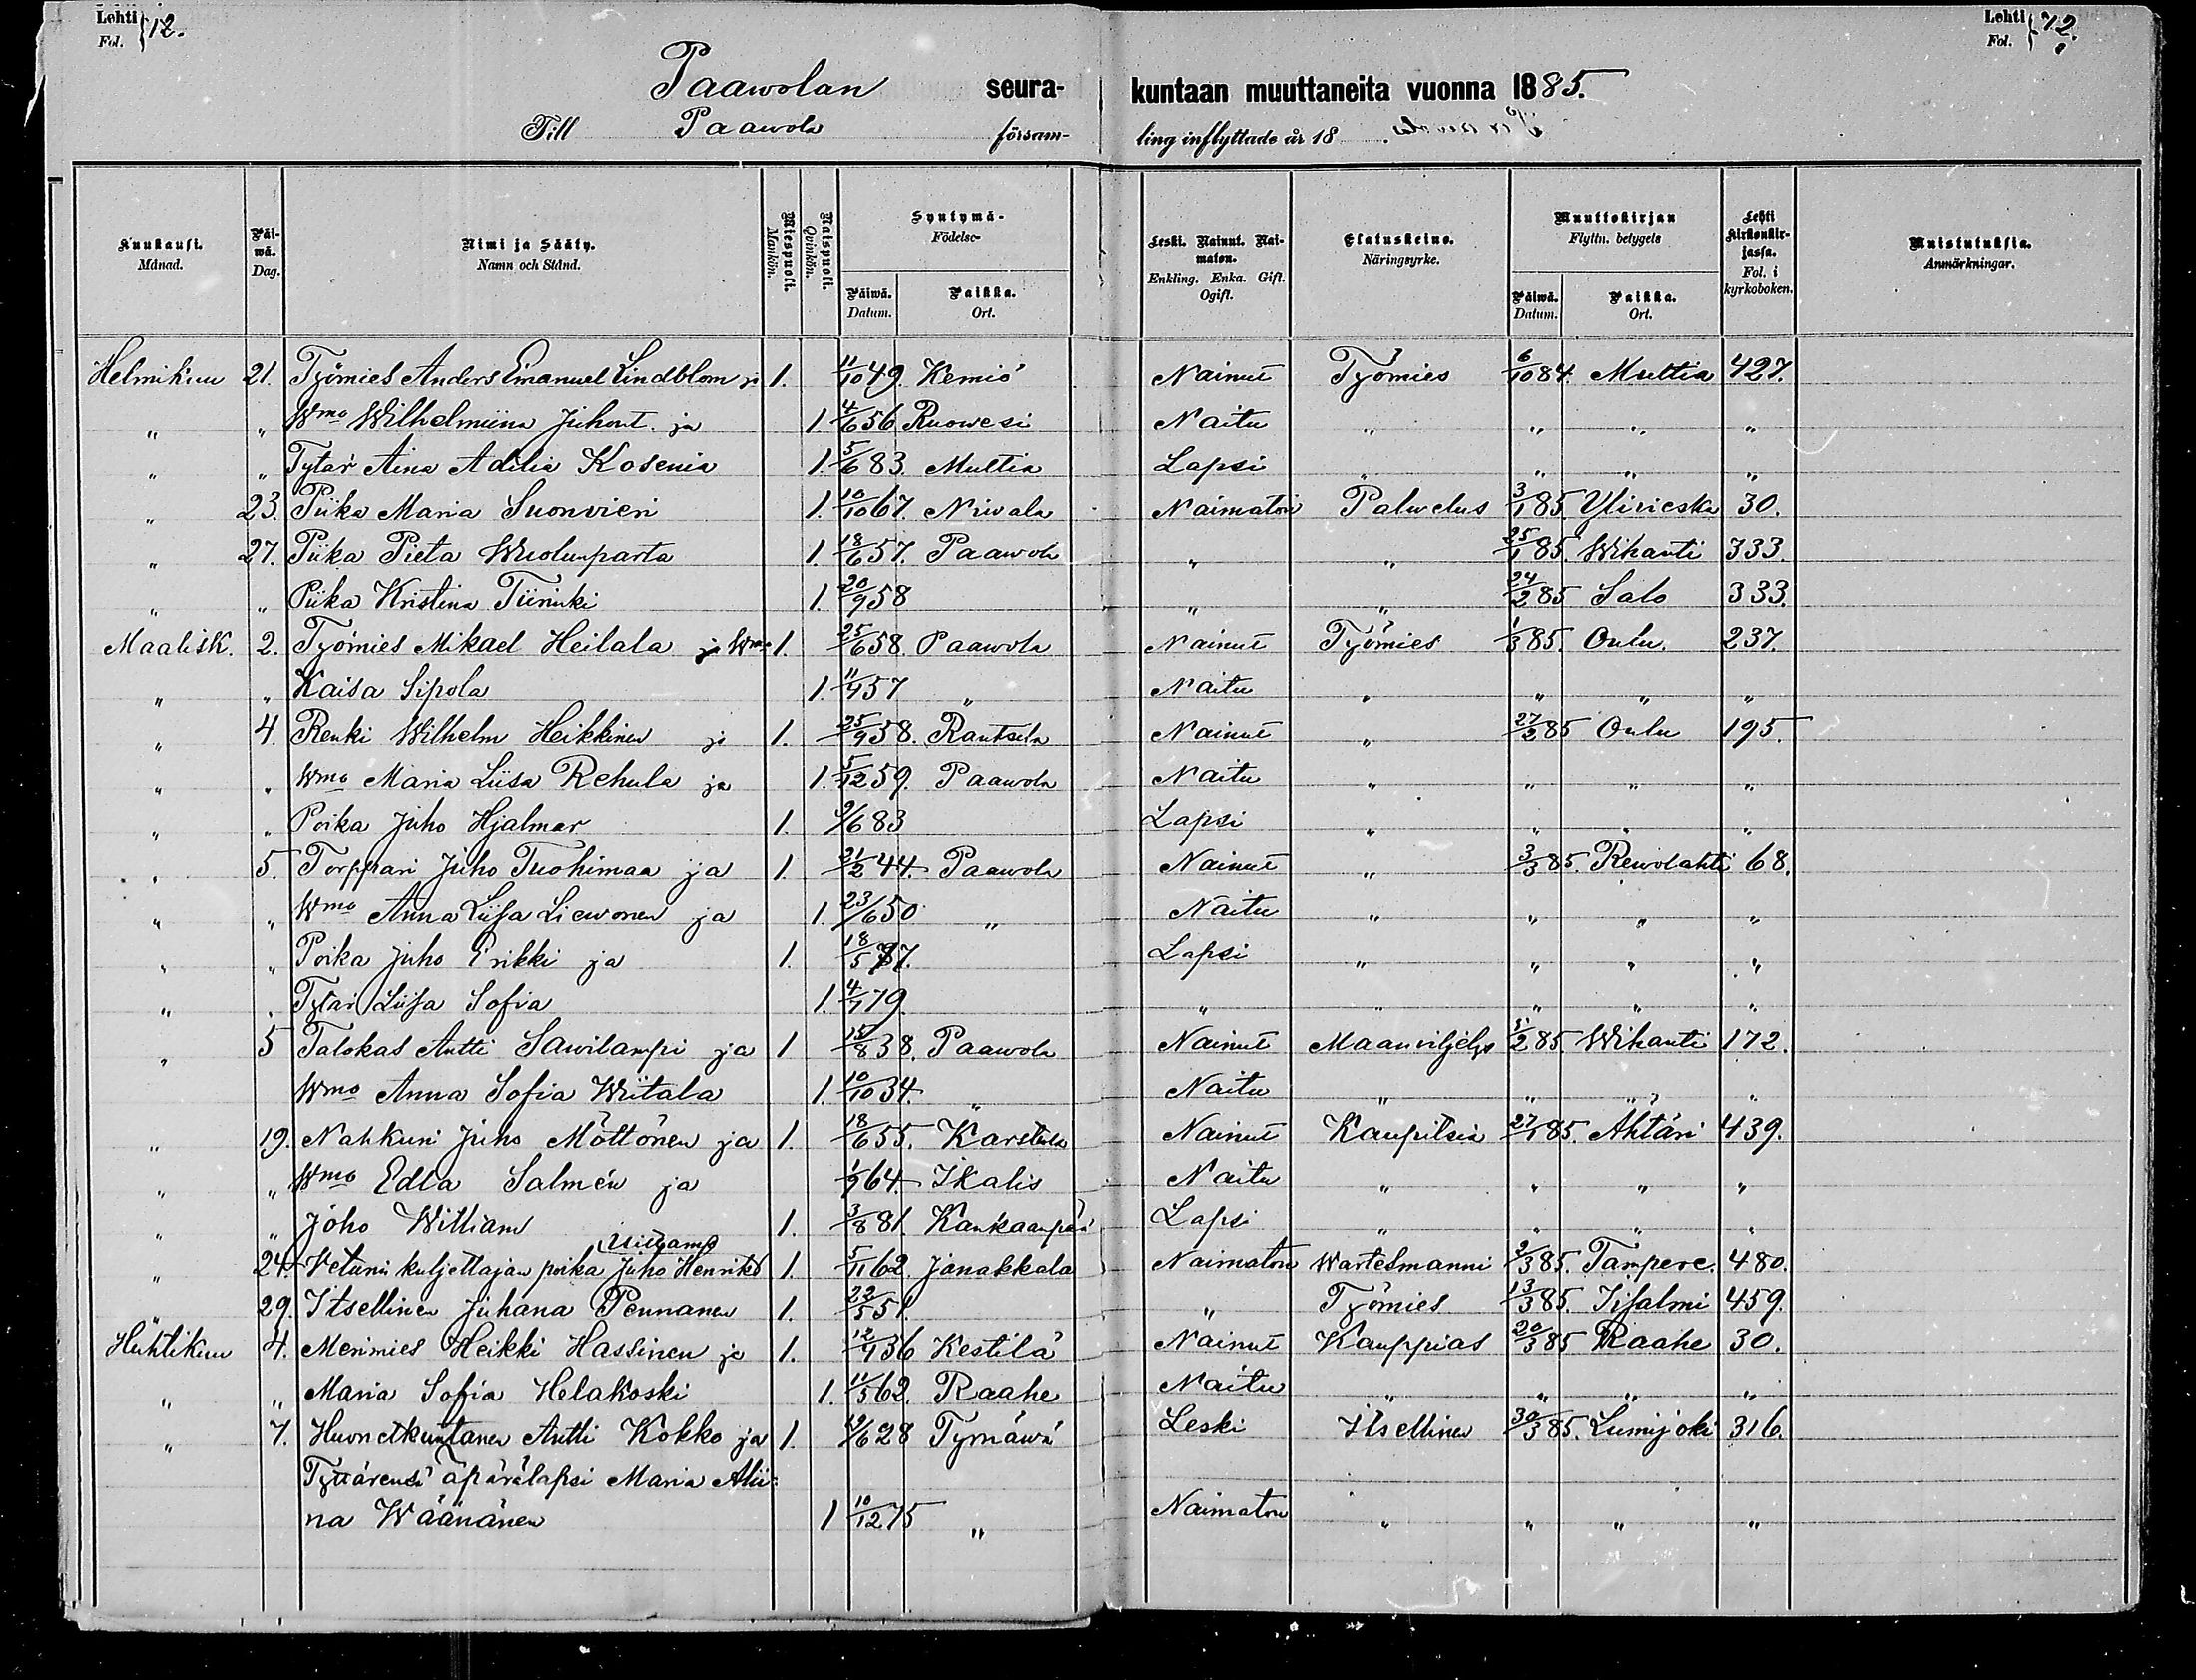 Lehti Fol. 12. Lehti Fol. 12.
Paawolan seura- kuntaan muuttaneita vuonna 1885.
Till Paawola försam- ling inflyttade år 18 .
Kuukausi. Månad. Päi-wä. Dag. Nimi ja Sääty. Namn och Stånd. Miespuoli. Mankön. Naispuoli. Qvinkön. Syntymä- Födelse- Päiwä. Datum. Paikka. Ort. Leski. Nainut. Nai-maton. Enkling. Enka. Gift. Ogift. Elatuskeino. Näringsyrke. Muuttokirjan Flyttn. betygets Päiwä. Datum. Paikka. Ort. Lehti Kirkonkir-jassa. Fol. i kyrkoboken. Muistutuksia. Anmärkningar.
Helmikuu 21. Työmies Anders Emanuel Lindblom ja 1. 11/10 49. Kemiö Nainut Työmies 6/10 84. Multia 427.
" " Wmo Wilhelmiina Juhont. ja 1. 4/6 56 Ruowesi Naitu " " " "
" " Tytär Aina Adilia Kosenia 1. 5/6 83. Multia Lapsi " " " "
" 23. Piika Maria Suonvieri 1. 10/10 67. Niwala Naimaton Palwelus 3/1 85. Ylivieska 30.
" 27. Piika Pieta Wuolunparta 1. 18/6 57. Paawola " " 25/1 85. Wihanti 333.
" " Piika Kristina Tiirinki 1. 20/9 58 " " 24/2 85 Salo 333.
Maalisk. 2. Työmies Mikael Heilala ja Wmo 1. 25/6 58. Paawola Nainut Työmies 1/3 85. Oulu. 237.
" " Kaisa Sipola 1. 11/9 57 " Naitu " " " "
" 4. Renki Wilhelm Heikkinen ja 1. 25/9 58. Rantsila Nainut " 27/2 85 Oulu 195.
" " Wmo Maria Liisa Rehula ja 1. 5/12 59. Paawola Naitu " " " "
" " Poika Juho Hjalmar 1. 9/6 83 Lapsi " " " "
" 5. Torppari Juho Tuohimaa ja 1. 21/2 44. Paawola Nainut " 3/3 85. Rewolahti 68.
" " Wmo Anna Liisa Liewonen ja 1. 23/6 50 " Naitu " " " "
" " Poika Juho Erikki ja 1. 18/5 77. Lapsi " " " "
" " Tytär Liisa Sofia 1. 4/7 79. " " " " "
" 5 Talokas Antti Sawilampi ja 1 15/8 38. Paawola Nainut Maanviljelys /2 85. Wihanti 172.
Wmo Anna Sofia Wiitala 1. 10/10 34. " Naitu " " " "
" 19. Nahkuri Juho Möttönen ja 1. 18/6 55. Karstula Nainut Kaupitsia 27/1 85. Ähtäri 439.
" " Wmo Edla Salmén ja 1/9 64. Ikalis Naitu " " " "
" " Joho William 1. 3/8 81. Kankaanpää Lapsi " " " "
" 24. Veturin kuljettajan poika Juho Henrikd 1. 5/11 62. Janakkala Naimaton Wärtelmanni 2/3 85. Tampere. 480.
" 29. Itsellinen Juhana Pennanen 1. 22/5 51. " Työmies 13/3 85. Iisalmi 459.
Huhtikuu 4. Merimies Heikki Hassinen ja 1. 12/9 36 Kestilä Nainut Kauppias 20/3 85 Raahe 30.
" " Maria Sofia Helakoski 1. 11/5 62. Raahe Naitu " " " "
" 7. Huonekuntanen Antti Kokko ja 1. /6 28 Tyrnäwä Leski Itsellinen 30/3 85. Lumijoki 316.
Tyttärensä äpärälapsi Maria Alii-
na Wäänänen 1 10/12 75 " Naimaton " " " "